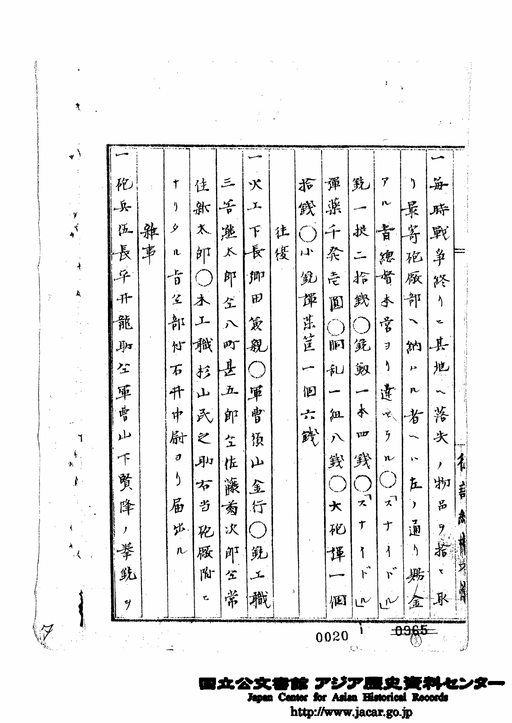 一毎時戦争終リニ其地ヘ落失ノ物品ヲ拾ヒ取
リ最寄砲廠部ヘ納ハル者ヘハ左ノ通リ賜金
アル旨総督本営ヨリ達セラル○「スナイドル」
銃一挺二拾銭○銃剣一本四銭○「スナイドル」
弾薬千発壱圓○胴乱一組八銭○大砲弾一個
拾銭○小銃弾薬筐一個六銭
往復
一火工下長郷田篤親○軍曹須山金行○銃工職
三苫進太郎仝八町甚五郎仝佐藤菊次郎仝常
住新太郎○木工職杉山民之助右当砲廠附ヒ
ナリタル旨仝部付石井中尉ヨリ届出ル
雑事
一砲兵伍長平井龍助仝軍曹山下賢降ノ拳銃ヲ
0020
0365
国立公文書館 アジア歴史資料センター
Japan Center for Asian Historical Records
http://www.jacar.go.jp